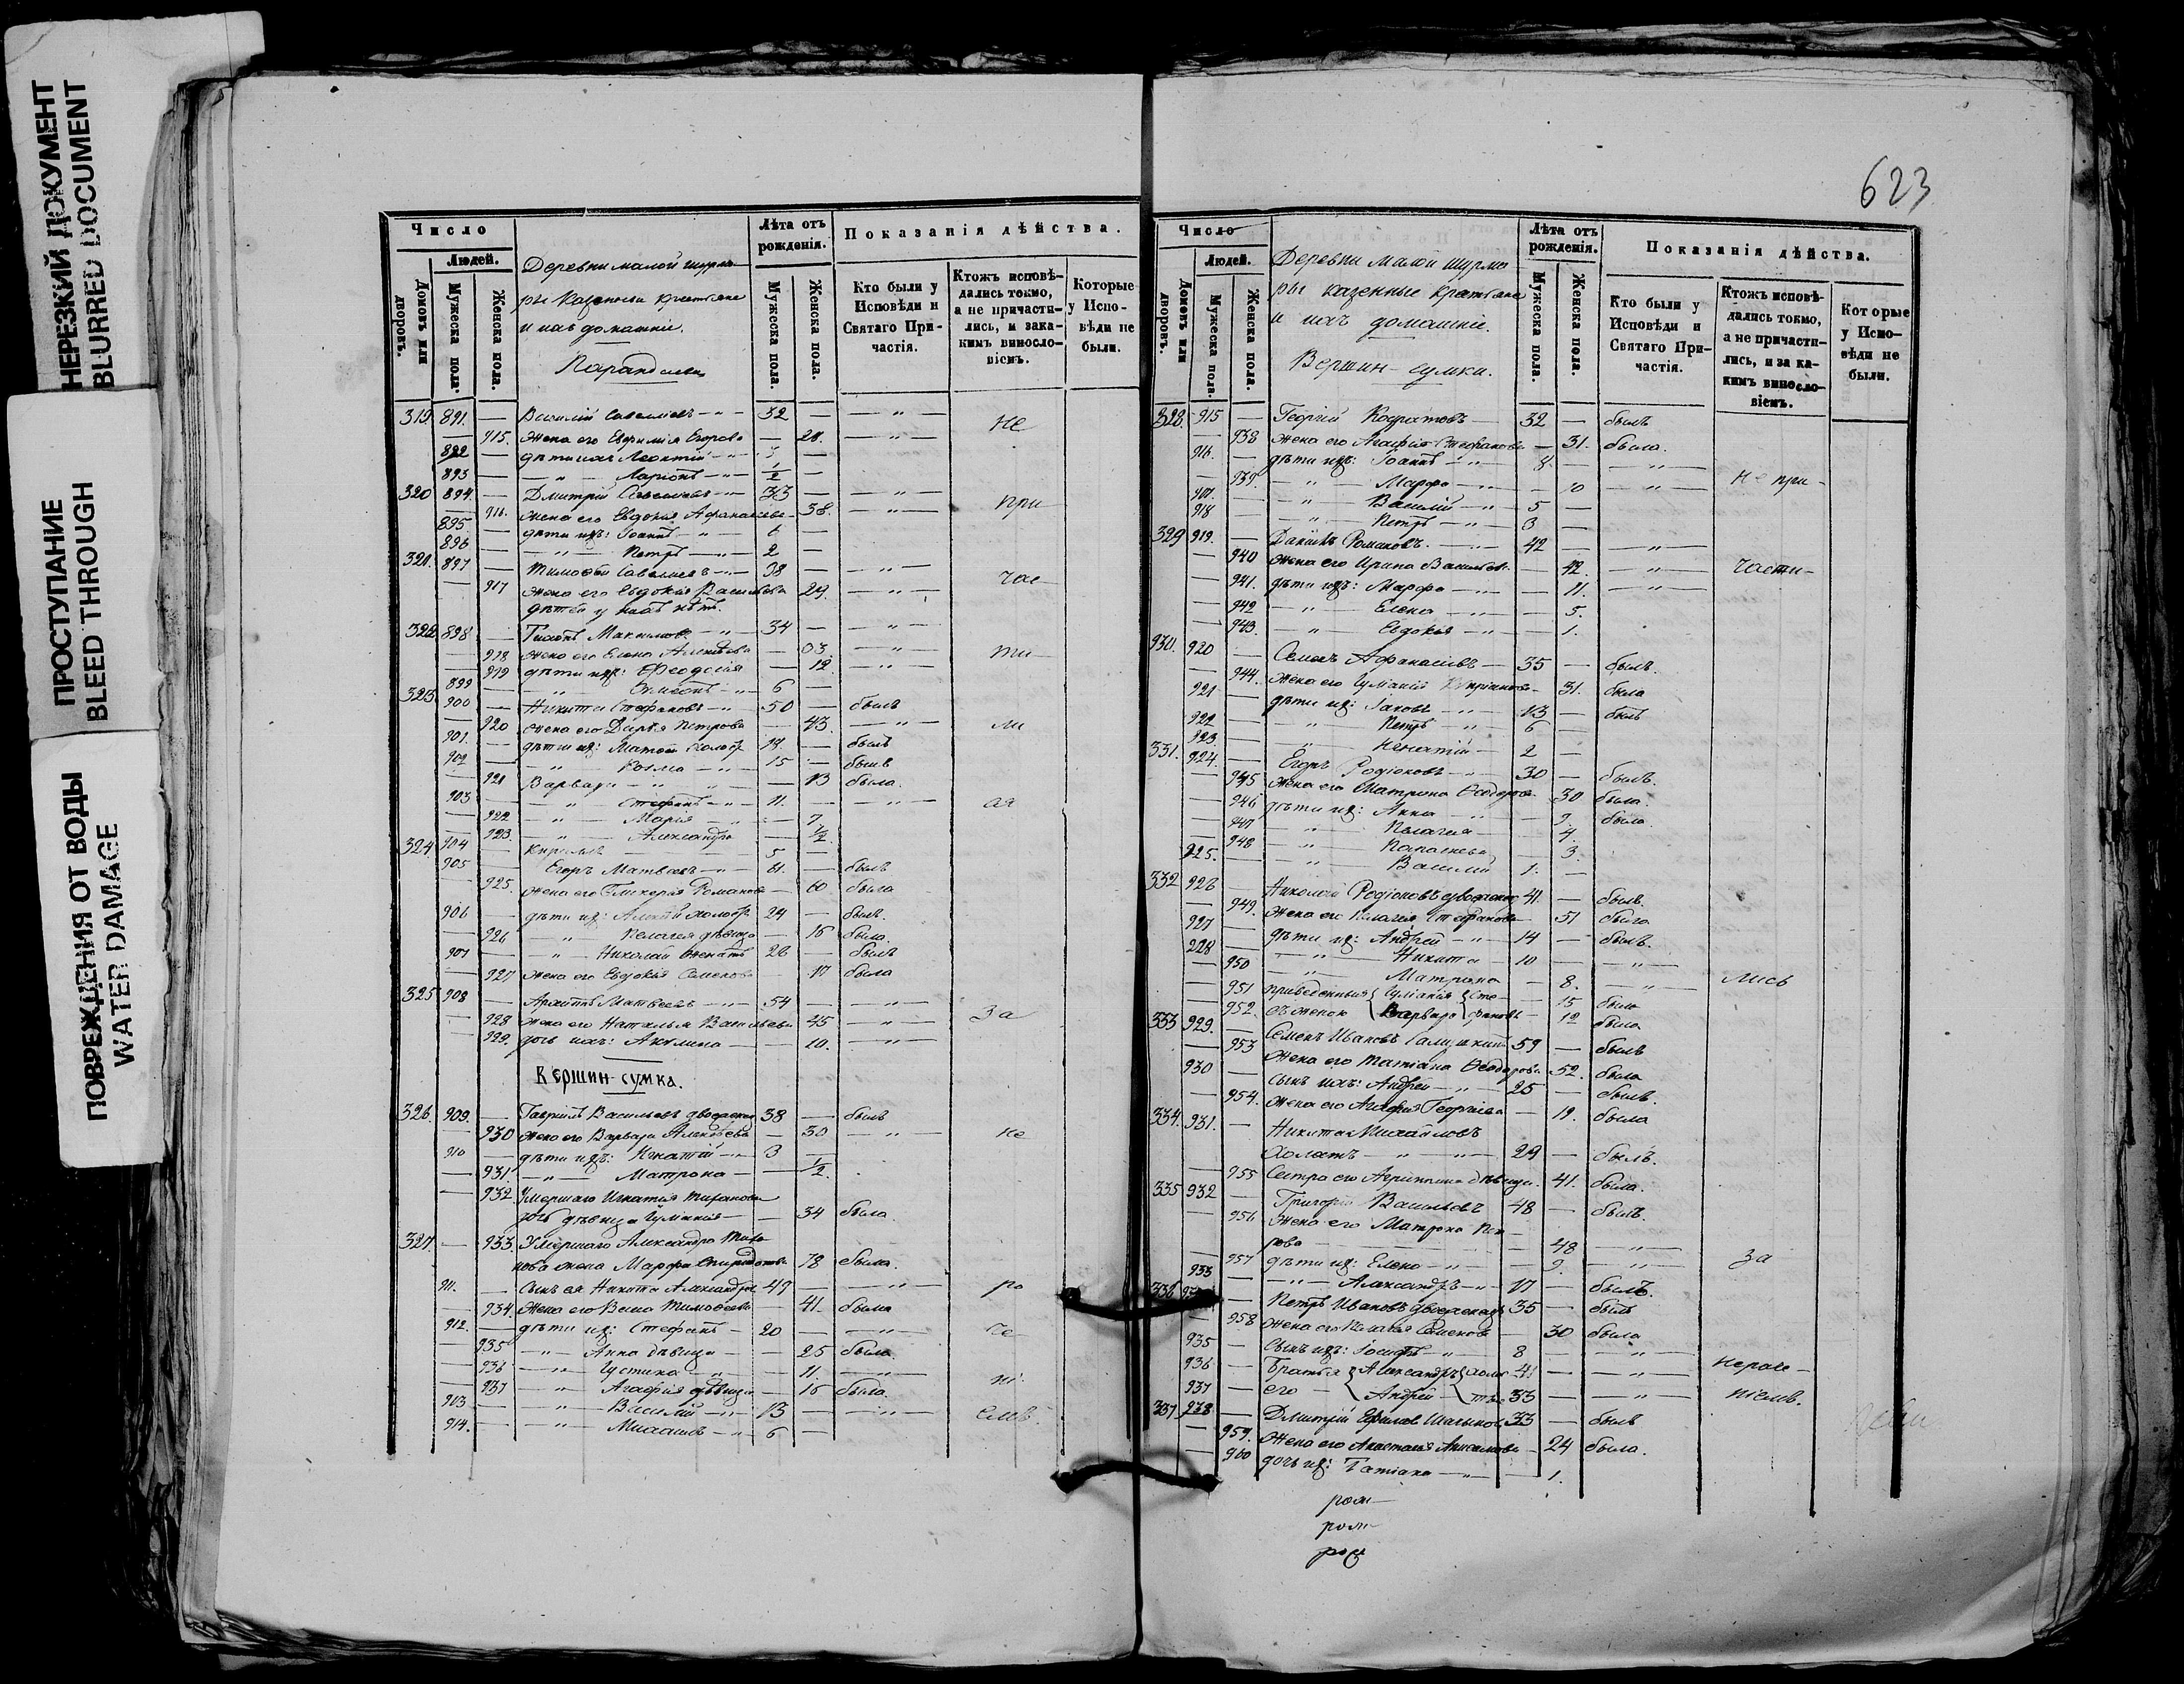 НЕРЕЗКИЙ ДОКУМЕНТ
BLURRED DOCUMENT
ПРОСТУПАНИЕ
BLEED THROUGH
ПОВРЕЖДЕНИЯ ОТ ВОДЫ
WATER DAMAGE
Число
Людей.
Домовъ или дворовъ.
Мужеска пола.
Женска пола.
Деревни малой шурма
ры казенныи крестьяне
и ихъ домашніе.
Лѣта отъ рожденія.
Мужеска пола.
Женска пола.
Показанія дѣйства.
Кто были у Исповѣди и Святаго Причастія.
Ктожъ исповѣдались токмо, а не причастились, и за какимъ винословіемъ.
Которые у Исповѣди не были.
319 891. — Василій Савеліевъ 32 — — " — не
915. жена его Евфимія Егорова — 28. — " —
892 — дѣти ихъ Леонтій 3 —
893 — " — Ларіонъ 1/2 —
320 894. — Дмитрій Савеліевъ 33 — — " — при
916. жена его Евдокія Афанасіева — 38. — " —
895 — дѣти ихъ: Іоаннъ 6 —
896 — " — Петръ 2 —
321. 897 — Тимофей Савелиевъ 38 — — " — час
917 жена его Евдокія Васильева 29. — " —
дѣтей у нихъ нѣтъ.
322 898 — Максимовъ 34 — — " —
918 жена его Елена Алексѣева — 33. — " — ти
919 дѣти ихъ: Феодосія — 12. — " —
899 — " — Симеонъ 6 —
323 900 — Никита Стефановъ 50 — былъ
920 жена его Дарья Петрова — 43. — " — ли
901. — дѣти ихъ: Матвей холост. 18. — былъ
902 — " — Козма 15 — былъ
921 Варвара — 13 была.
903 — " — Стефанъ 11. — — " — ся
922 — " — Мария — 7.
923. — " — Александра — 1/2
324 904 — Кирилъ 5 —
905 — Егоръ Матвеевъ 61. — былъ
925. жена его Гликерія Романова — 60 была
906 — дѣти ихъ: Алексѣй холост. 24 — былъ.
926 — " — Пелагея дѣвица — 16 была.
907 — " — Николай женатъ 26 — былъ
927 жена его Евдокія Семенова — 17 была
325 908 — Архипъ Матвеевъ 54 — — " —
928 жена его Наталья Васильева 45 — " — за
929. дочь ихъ: Акулина — 10. — " —
Вершин-сумка.
326. 909. — Гавріилъ Васильевъ 38 — былъ
930 жена его Варвара Алексѣева — 30 — " — не
910 — дѣти ихъ: Игнатій 3 —
931. — " — Матрона — 1/2.
932 Умершаго Игнатія
дочь дѣвица Іуліанія — 34 была.
327. — 933. Умершаго Александра Тихо
нова жена Марфа Спиридонова 78 была.
911. — сынъ ея Никита Александровъ 49 — — " — ра
934. жена его Васса Тимофеева — 41. была
912. — дѣти ихъ: Стефанъ 20 — — " — че
935 — " — Анна дѣвица — 25 была.
936 — " — Іустина — 11. — " —
937 — " — Агафія дѣвица — 16 была. ні
913 — " — Василій 13 — — " — емъ.
914. — " — Михаилъ 6 —
623
Число
Людей.
Домовъ или дворовъ.
Мужеска пола.
Женска пола.
Деревни малой шурма
ры казенные крестьяне
и ихъ домашніе.
Вершин-сумки.
Лѣта отъ рожденія.
Мужеска пола.
Женска пола.
Показанія дѣйства.
Кто были у Исповѣди и Святаго Причастія.
Ктожъ исповѣдались токмо, а не причастились, и за какимъ винословіемъ.
Которые у Исповѣди не были.
328. 915 — Георгій Кодратовъ 32 — былъ
938 жена его Агафія Стефанова — 31. была.
916. — дѣти ихъ: Іоаннъ 8 — — " —
939. — " — Марфа — 10 — " — не при-
917. — " — Василій 5 —
918 — " — Петръ 3 —
329 919. — Даніилъ Романовъ. 42 — — " —
940 жена его Ирина Васильева — 42. — " — части-
941. дѣти ихъ: Марфа — 11. — " —
942 — " — Елена — 5.
943. — " — Евдокія — 1.
330. 920 — Семенъ Афанасіевъ 35 — былъ.
944. жена его Іуліанія — 31. была
921 — дѣти ихъ: Іаковъ 13 — былъ
922 — " — Петръ 6 —
923. — " — Игнатій 2 —
331. 924. — Егоръ Родіоновъ 30 — былъ.
945 жена его Матрона Феодорова 30 была.
946 дѣти ихъ: Анна — 9. была.
947 — " — Пелагея — 4.
948 — " — — 3.
925. — " — Василій 1. —
332 926 — Николай Родіоновъ 41. — былъ.
949. жена его Пелагея Стефанова 51 была
927 — дѣти ихъ: Андрей 14 — былъ.
928 — " — Никита 10 — — " —
950 — " — Матрона — 8. — " — лись
951 приведенныя Іуліанія Сте- — 15 была
952. съ женою Варвара фановы — 12 была
333 929. — Семенъ Ивановъ Галушкинъ 59 — былъ
953 жена его Татіана Феодорова 52. была
930 — сынъ ихъ: Андрей 25 — былъ.
954. жена его Агафія Георгіева — 19. была
334. 931. — Никита Михайловъ
Холостъ 29 — былъ.
955 Сестра его Агриппина дѣвица. 41. была.
335 932 — Григорій Васильевъ 48 — былъ.
956 жена его Матрона Пет
рова — 48 — " — за
957 дѣти ихъ: Елена — 9. — " —
933 — " — Александръ 17 — былъ.
336 — Петръ Ивановъ 35 — былъ
958 жена его Пелагея Семенова — 30 была
935 — сынъ ихъ: Іосифъ 8 — — " —
936 — Братья Александръ холос 41 — — " — нераче-
937 — его Андрей тые 33 — — " — ніемъ.
337 938 — Дмитрій Ефимов 33 — былъ
959. жена его Анастасія — 24 была.
960 дочь ихъ: Татіана — 1.